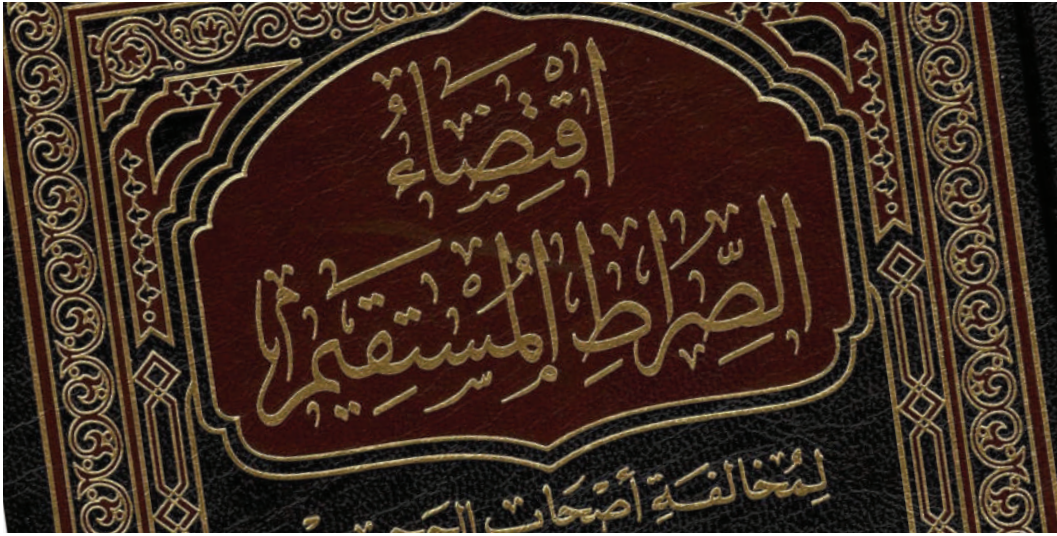 اقتِضَاءُ
الصِّرَاطِ المُسْتَقِيمِ
لِمُخَالفَةِ أصْحَاب